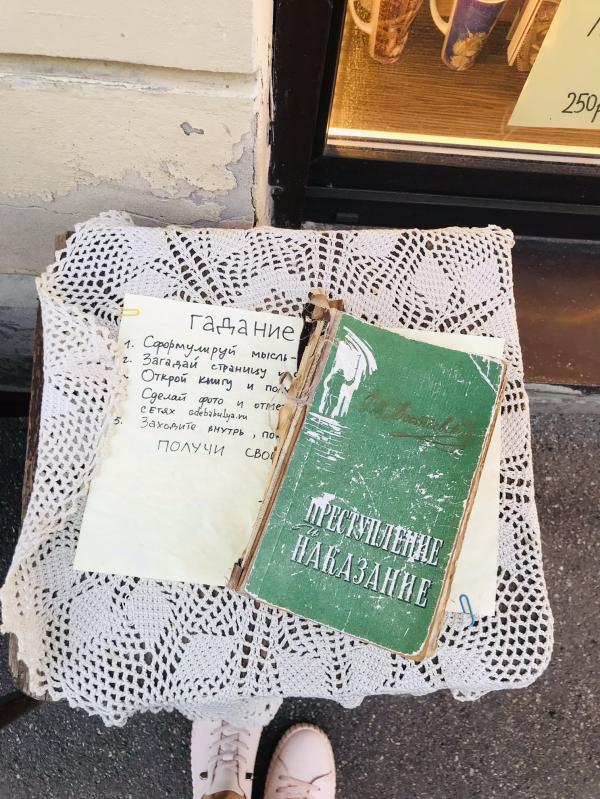 250р
гадание
1. Сформулируй мысль-
2. Загадай страницу и
Открой книгу и
Сделай фото и
сетях gdebabulya.ru
5. Заходите внутрь,
ПОЛУЧИ
ПРЕСТУПЛЕНИЕ
и
НАКАЗАНИЕ